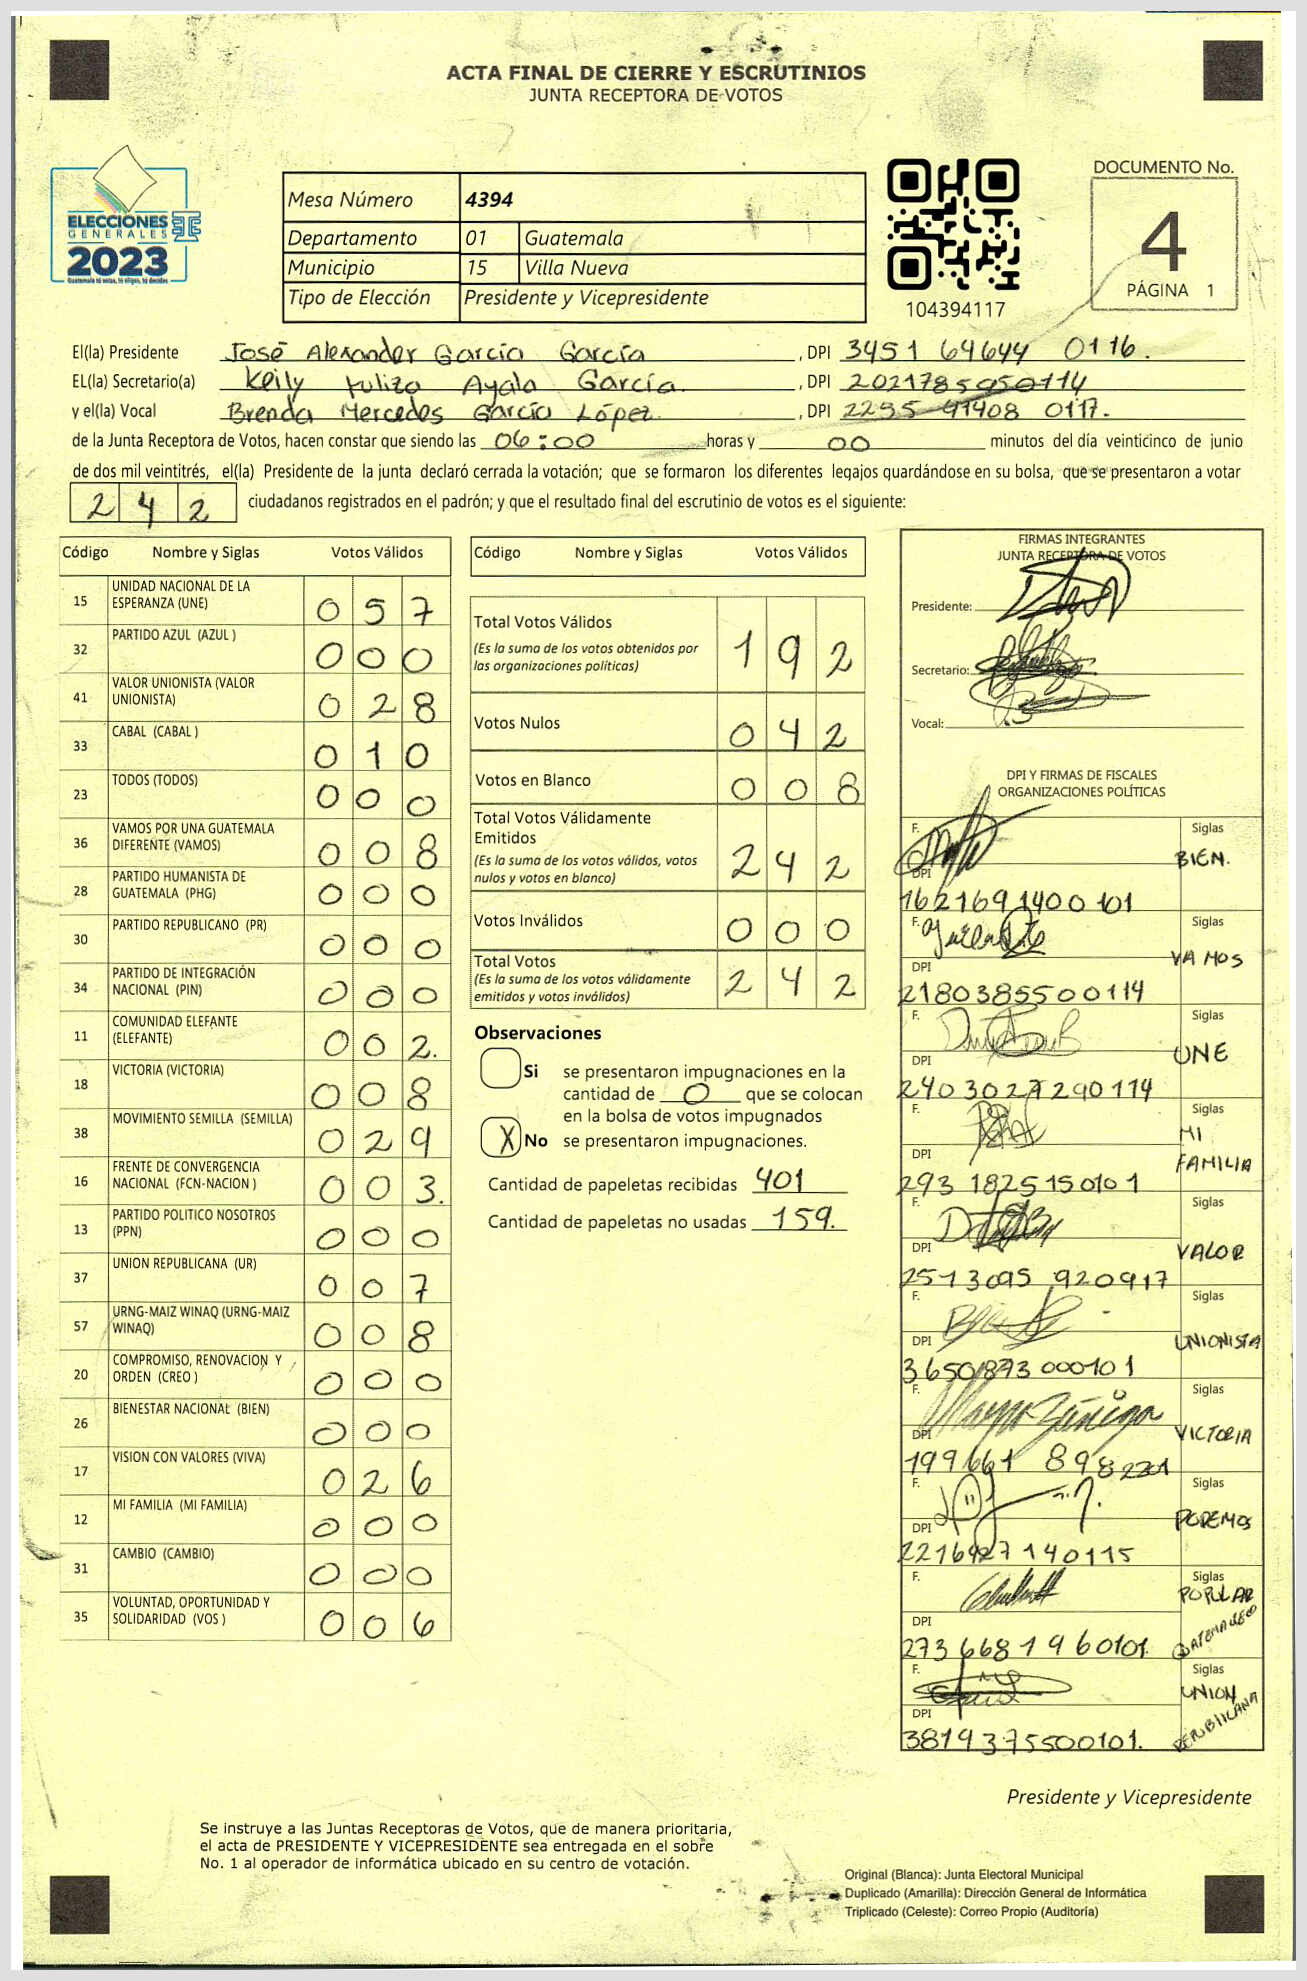 ACTA FINAL DE CIERRE Y ESCRUTINIOS
JUNTA RECEPTORA DE VOTOS
ELECCIONES
GENERALES
2023
Guatemala tú votas, tú eliges, tú decides
Mesa Número 4394
Departamento 01 Guatemala
Municipio 15 Villa Nueva
Tipo de Elección Presidente y Vicepresidente
104394117
DOCUMENTO No.
4
PÁGINA 1
El(la) Presidente José Alexander García García, DPI 3451 64644 0116.
EL(la) Secretario(a) Keily Yuliza Ayala García, DPI 2021785950114
y el(la) Vocal Brenda Mercedes García López, DPI 2295 41408 0117.
de la Junta Receptora de Votos, hacen constar que siendo las 06:00 horas y 00 minutos del día veinticinco de junio
de dos mil veintitrés, el(la) Presidente de la junta declaró cerrada la votación; que se formaron los diferentes legajos quardándose en su bolsa, que se presentaron a votar
242 ciudadanos registrados en el padrón; y que el resultado final del escrutinio de votos es el siguiente:
Código Nombre y Siglas Votos Válidos
15 UNIDAD NACIONAL DE LA ESPERANZA (UNE) 057
32 PARTIDO AZUL (AZUL ) 000
41 VALOR UNIONISTA (VALOR UNIONISTA) 028
33 CABAL (CABAL ) 010
23 TODOS (TODOS) 000
36 VAMOS POR UNA GUATEMALA DIFERENTE (VAMOS) 008
28 PARTIDO HUMANISTA DE GUATEMALA (PHG) 000
30 PARTIDO REPUBLICANO (PR) 000
34 PARTIDO DE INTEGRACIÓN NACIONAL (PIN) 000
11 COMUNIDAD ELEFANTE (ELEFANTE) 002.
18 VICTORIA (VICTORIA) 008
38 MOVIMIENTO SEMILLA (SEMILLA) 029
16 FRENTE DE CONVERGENCIA NACIONAL (FCN-NACION ) 003.
13 PARTIDO POLITICO NOSOTROS (PPN) 000
37 UNION REPUBLICANA (UR) 007
57 URNG-MAIZ WINAQ (URNG-MAIZ WINAQ) 008
20 COMPROMISO, RENOVACION Y ORDEN (CREO ) 000
26 BIENESTAR NACIONAL (BIEN) 000
17 VISION CON VALORES (VIVA) 026
12 MI FAMILIA (MI FAMILIA) 000
31 CAMBIO (CAMBIO) 000
35 VOLUNTAD, OPORTUNIDAD Y SOLIDARIDAD (VOS ) 006
Código Nombre y Siglas Votos Válidos
Total Votos Válidos 192
(Es la suma de los votos obtenidos por
las organizaciones políticas)
Votos Nulos 042
Votos en Blanco 008
Total Votos Válidamente
Emitidos 242
(Es la suma de los votos válidos, votos
nulos y votos en blanco)
Votos Inválidos 000
Total Votos 242
(Es la suma de los votos válidamente
emitidos y votos inválidos)
Observaciones
Si se presentaron impugnaciones en la
cantidad de 0 que se colocan
en la bolsa de votos impugnados
X No se presentaron impugnaciones.
Cantidad de papeletas recibidas 401
Cantidad de papeletas no usadas 159.
FIRMAS INTEGRANTES
JUNTA RECEPTORA DE VOTOS
Presidente:
Secretario:
Vocal:
DPI Y FIRMAS DE FISCALES
ORGANIZACIONES POLÍTICAS
F. Siglas
BIEN.
DPI
1621691400101
F. Siglas
VAMOS
DPI
2180385500114
F. Siglas
UNE
DPI
2403027290114
F. Siglas
MI
FAMILIA
DPI
2931825150101
F. Siglas
VALOR
DPI
2513095 920917
F. Siglas
UNIONISTA
DPI
3650873000101
F. Siglas
VICTORIA
DPI
199661 898 2201
F. Siglas
PODEMOS
DPI
2216927140115
F. Siglas
POPULAR
DPI
2736681960101.
F. Siglas
UNION
REPUBLICANA
DPI
3819375500101.
Presidente y Vicepresidente
Se instruye a las Juntas Receptoras de Votos, que de manera prioritaria,
el acta de PRESIDENTE Y VICEPRESIDENTE sea entregada en el sobre
No. 1 al operador de informática ubicado en su centro de votación.
Original (Blanca): Junta Electoral Municipal
Duplicado (Amarilla): Dirección General de Informática
Triplicado (Celeste): Correo Propio (Auditoría)